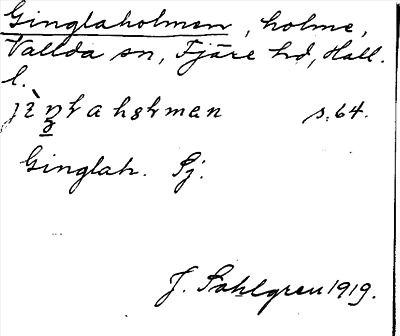 Ginglaholmen, holme,
Vallda sn, Fjäre hd, Hall.
l.
s. 64.
Ginglah. Sj.
J. Sahlgren 1919.